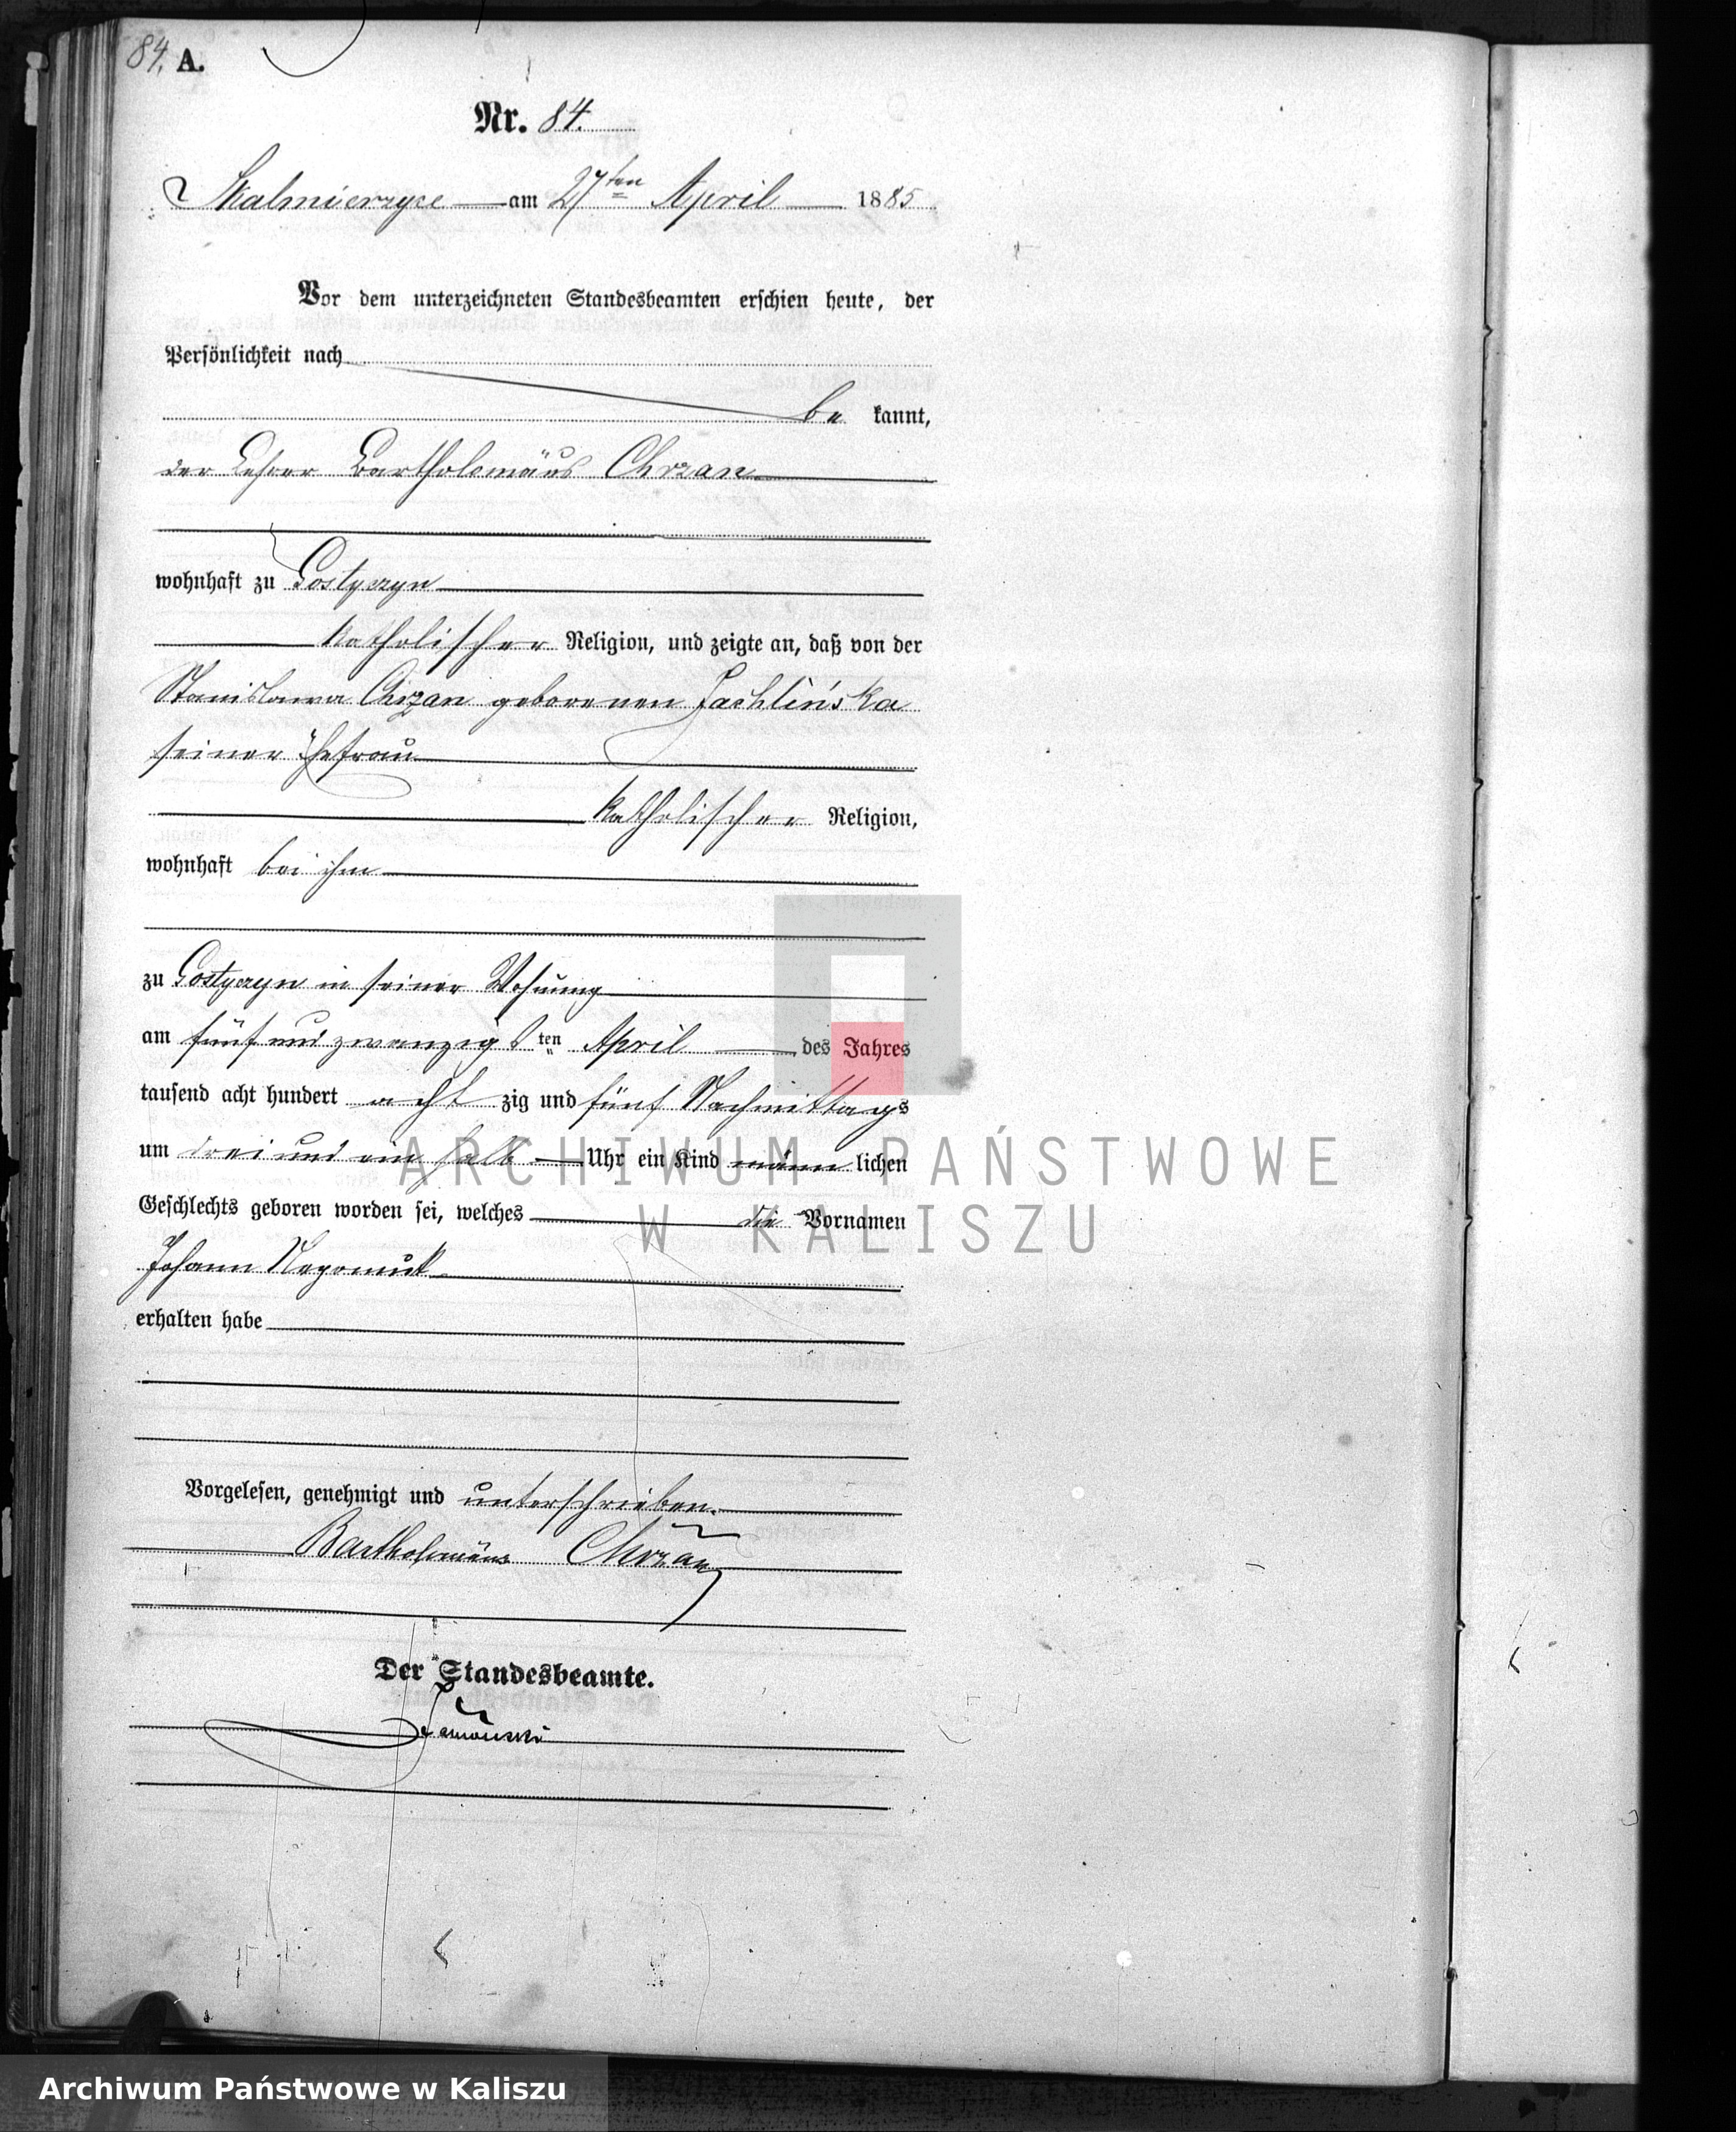 84. A.
Nr. 84.
Skalmierzyce am 27ten April 1885
Vor dem unterzeichneten Standesbeamten erschien heute, der
Persönlichkeit nach
be kannt,
der Lehrer Bartholomäus Chrzan
wohnhaft zu Gostyczyn
katholischer Religion, und zeigte an, daß von der
Stanislawa Chrzan geborenen Jachlińska
seiner Ehefrau
katholischer Religion,
wohnhaft bei ihm
zu Gostyczyn in seiner Wohnung
am fünf und zwanzigsten April des Jahres
tausend acht hundert acht zig und fünf Nachmittags
um drei und ein halb Uhr ein Kind männ lichen
Geschlechts geboren worden sei, welches die Vornamen
Johann Nepomuk
erhalten habe
Vorgelesen, genehmigt und unterschrieben.
Bartholomäus Chrzan
Der Standesbeamte.
ARCHIWUM PAŃSTWOWE
W KALISZU
Archiwum Państwowe w Kaliszu